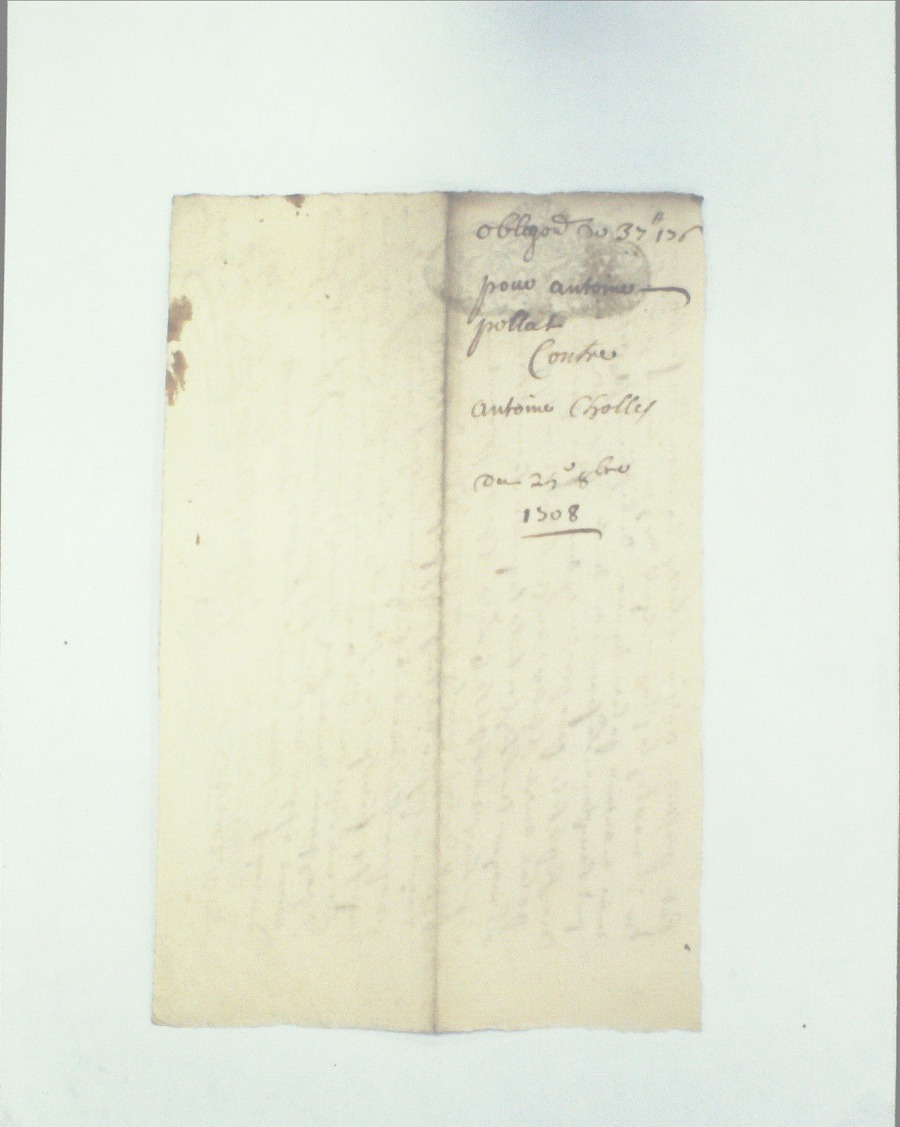 obligaõn de 37# 17s
pour antoine
pollat
Contre
antoine Chollet
Du 25e 8bre
1708